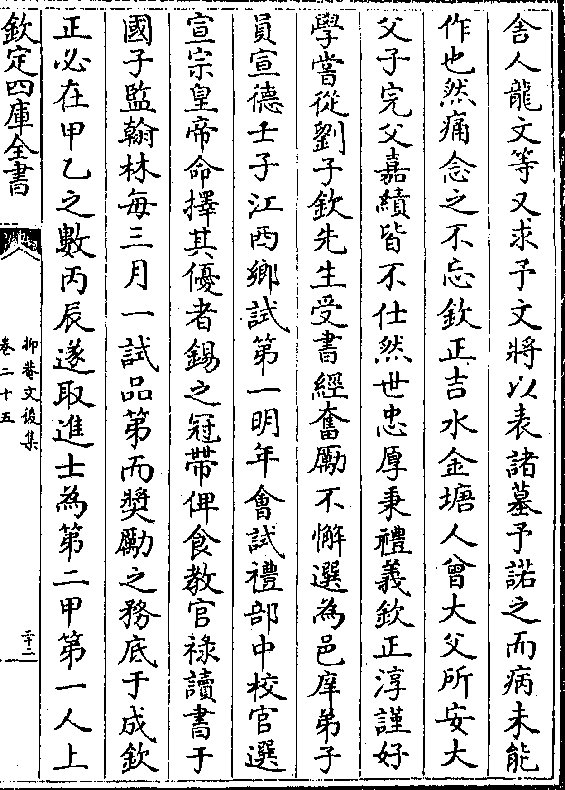 舍人龍文等又求予文將以表諸墓予諾之而病未能
作也然痛念之不忘欽正吉水金塘人曾大父所安大
父子完父嘉績皆不仕然世忠厚秉禮義欽正淳謹好
學嘗從劉子欽先生受書經奮勵不懈選為邑庠弟子
員宣德壬子江西鄉試第一明年會試禮部中校官選
宣宗皇帝命擇其優者錫之冠帶俾食教官祿讀書于
國子監翰林每三月一試品第而奬勵之務底于成欽
正必在甲乙之數丙辰遂取進士為第二甲第一人上
欽定四庫全書
抑菴文後集
卷二十五